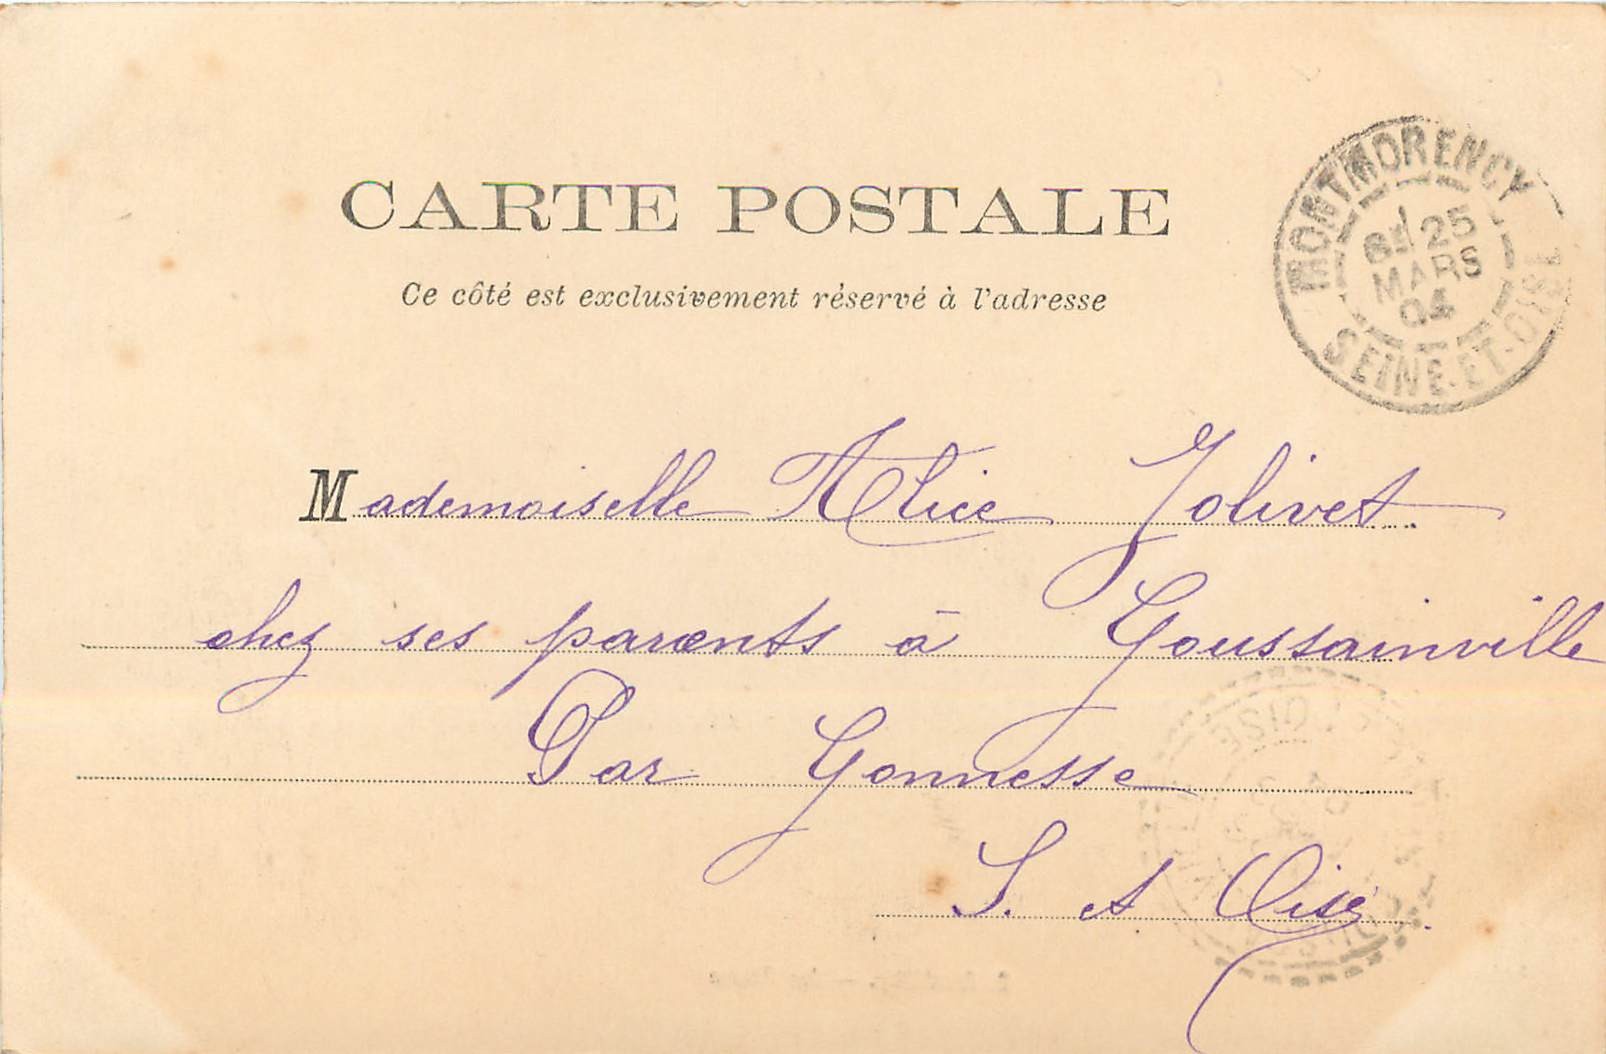 CARTE POSTALE
Ce côté est exclusivement réservé à l'adresse
MONTMORENCY
25
MARS
04
SEINE-ET-OISE
Mademoiselle Alice Jolivet
chez ses parents à Goussainville
Par Gonnesse
S. et Oise
OISE